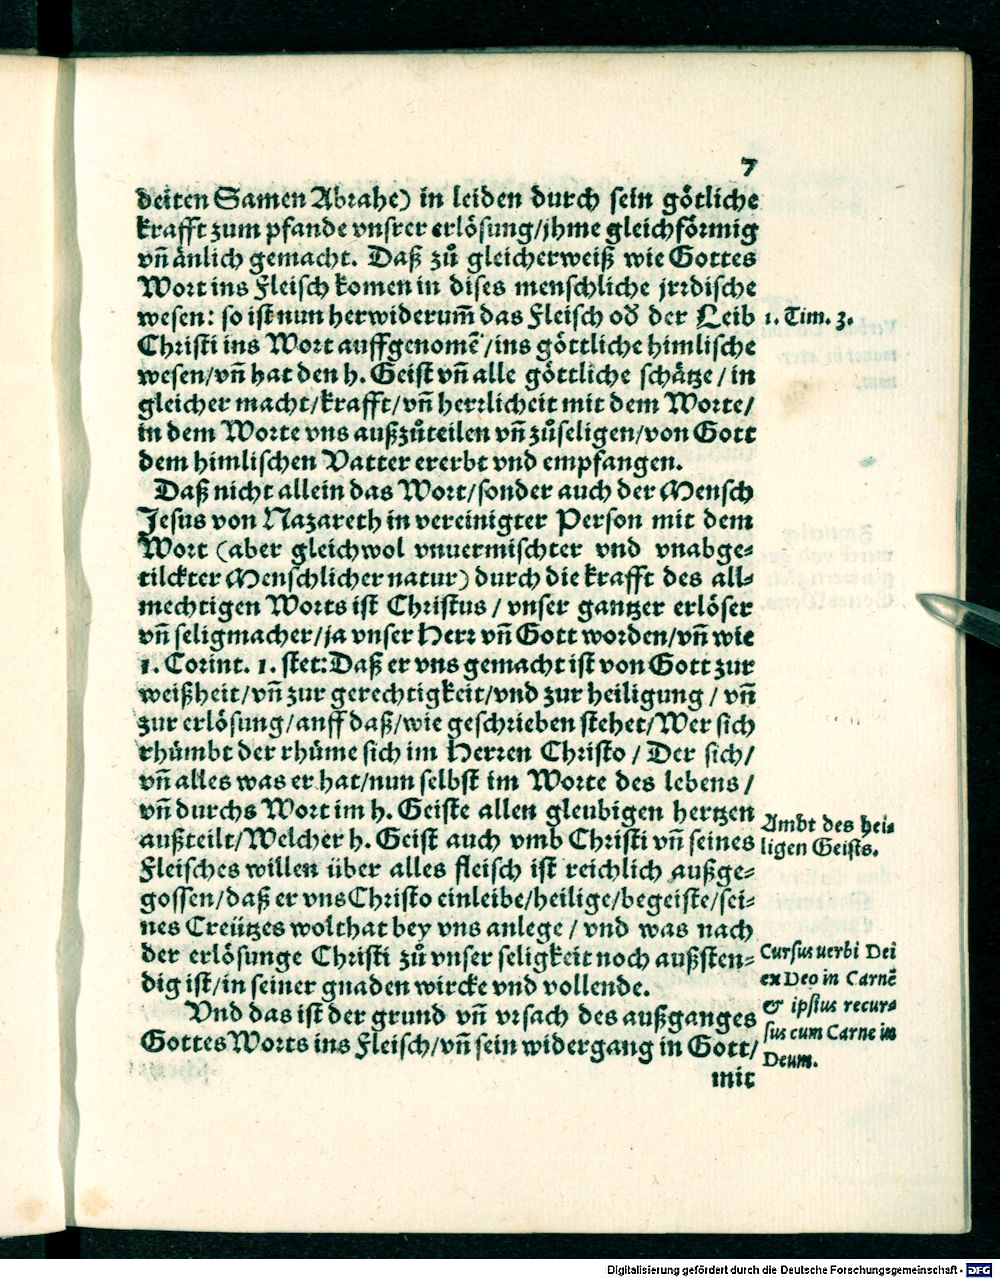 7
deiten Samen Abrahe) in leiden durch sein götliche
krafft zum pfande vnsrer erlösung/jhme gleichförmig
vn̄ änlich gemacht. Daß zů gleicherweiß wie Gottes
Wort ins Fleisch komen in dises menschliche jrrdische
wesen: so ist nun herwiderum̄ das Fleisch od̕ der Leib
1. Tim. 3.
Christi ins Wort auffgenomē/ins göttliche himlische
wesen/vn̄ hat den h. Geist vn̄ alle göttliche schätze/in
gleicher macht/krafft/vn̄ herrlicheit mit dem Worte/
in dem Worte vns außzůteilen vn̄ zůseligen/von Gott
dem himlischen Vatter ererbt vnd empfangen.
Daß nicht allein das Wort/sonder auch der Mensch
Jesus von Nazareth in vereinigter Person mit dem
Wort (aber gleichwol vnuermischter vnd vnabge-
tilckter Menschlicher natur) durch die krafft des all-
mechtigen Worts ist Christus/vnser gantzer erlöser
vn̄ seligmacher/ja vnser Herr vn̄ Gott worden/vn̄ wie
1. Corint. 1. stet: Daß er vns gemacht ist von Gott zur
weißheit/vn̄ zur gerechtigkeit/vnd zur heiligung/vn̄
zur erlösung/auff daß/wie geschrieben stehet/Wer sich
rhümbt der rhüme sich im Herren Christo/Der sich/
vn̄ alles was er hat/nun selbst im Worte des lebens/
vn̄ durchs Wort im h. Geiste allen gleubigen hertzen
außteilt/Welcher h. Geist auch vmb Christi vn̄ seines
Ambt des hei-
ligen Geists.
Fleisches willen über alles fleisch ist reichlich außge-
gossen/daß er vns Christo einleibe/heilige/begeiste/sei-
nes Creützes wolthat bey vns anlege/vnd was nach
der erlösunge Christi zů vnser seligkeit noch außsten-
dig ist/in seiner gnaden wircke vnd vollende.
Vnd das ist der grund vn̄ vrsach des außganges
Gottes Worts ins Fleisch/vn̄ sein widergang in Gott/
Cursus uerbi Dei
ex Deo in Carnē
& ipsius recur-
sus cum Carne in
Deum.
mit
Digitalisierung gefördert durch die Deutsche Forschungsgemeinschaft - DFG